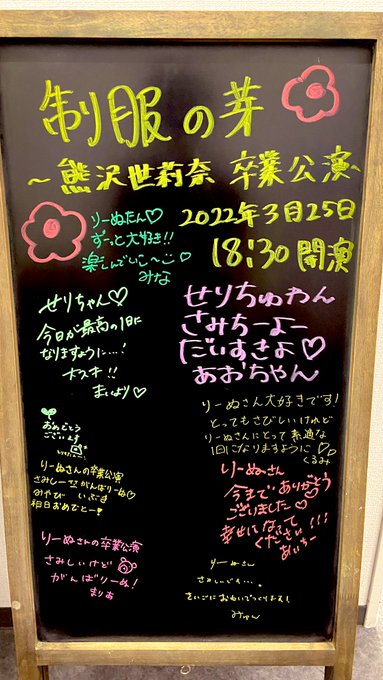 制服の芽
〜熊沢世莉奈 卒業公演〜
2022年3月25日
18:30 開演
りーぬたん♡
ずーっと大好き!!
楽しんでいこ〜こ♡
みな
せりちゃん♡
今日が最高の1日に
なりますように…!
オスオ!!
まいより♡
せりちゅわん
さみちーよー
だいすきよ♡
あおちゃん
おめでとう
ございます
りーぬさん大好きです!
とってもさびしいけれど
りーぬさんにとって素適な
1日になりますように♡
くるみ
りーぬさんの卒業公演
さみしーがんばりーぬ♡
みやび いぶき
初日おめでとー!
りーぬさん
今までありがとう
ございました♡
幸せになって
ください!!!
あいすー
りーぬさんの卒業公演
さみしいけど
がんばりーぬ!
まりあ
りーぬさん
さみしいです…
さいごにおもいでつくりましょ
みゅん